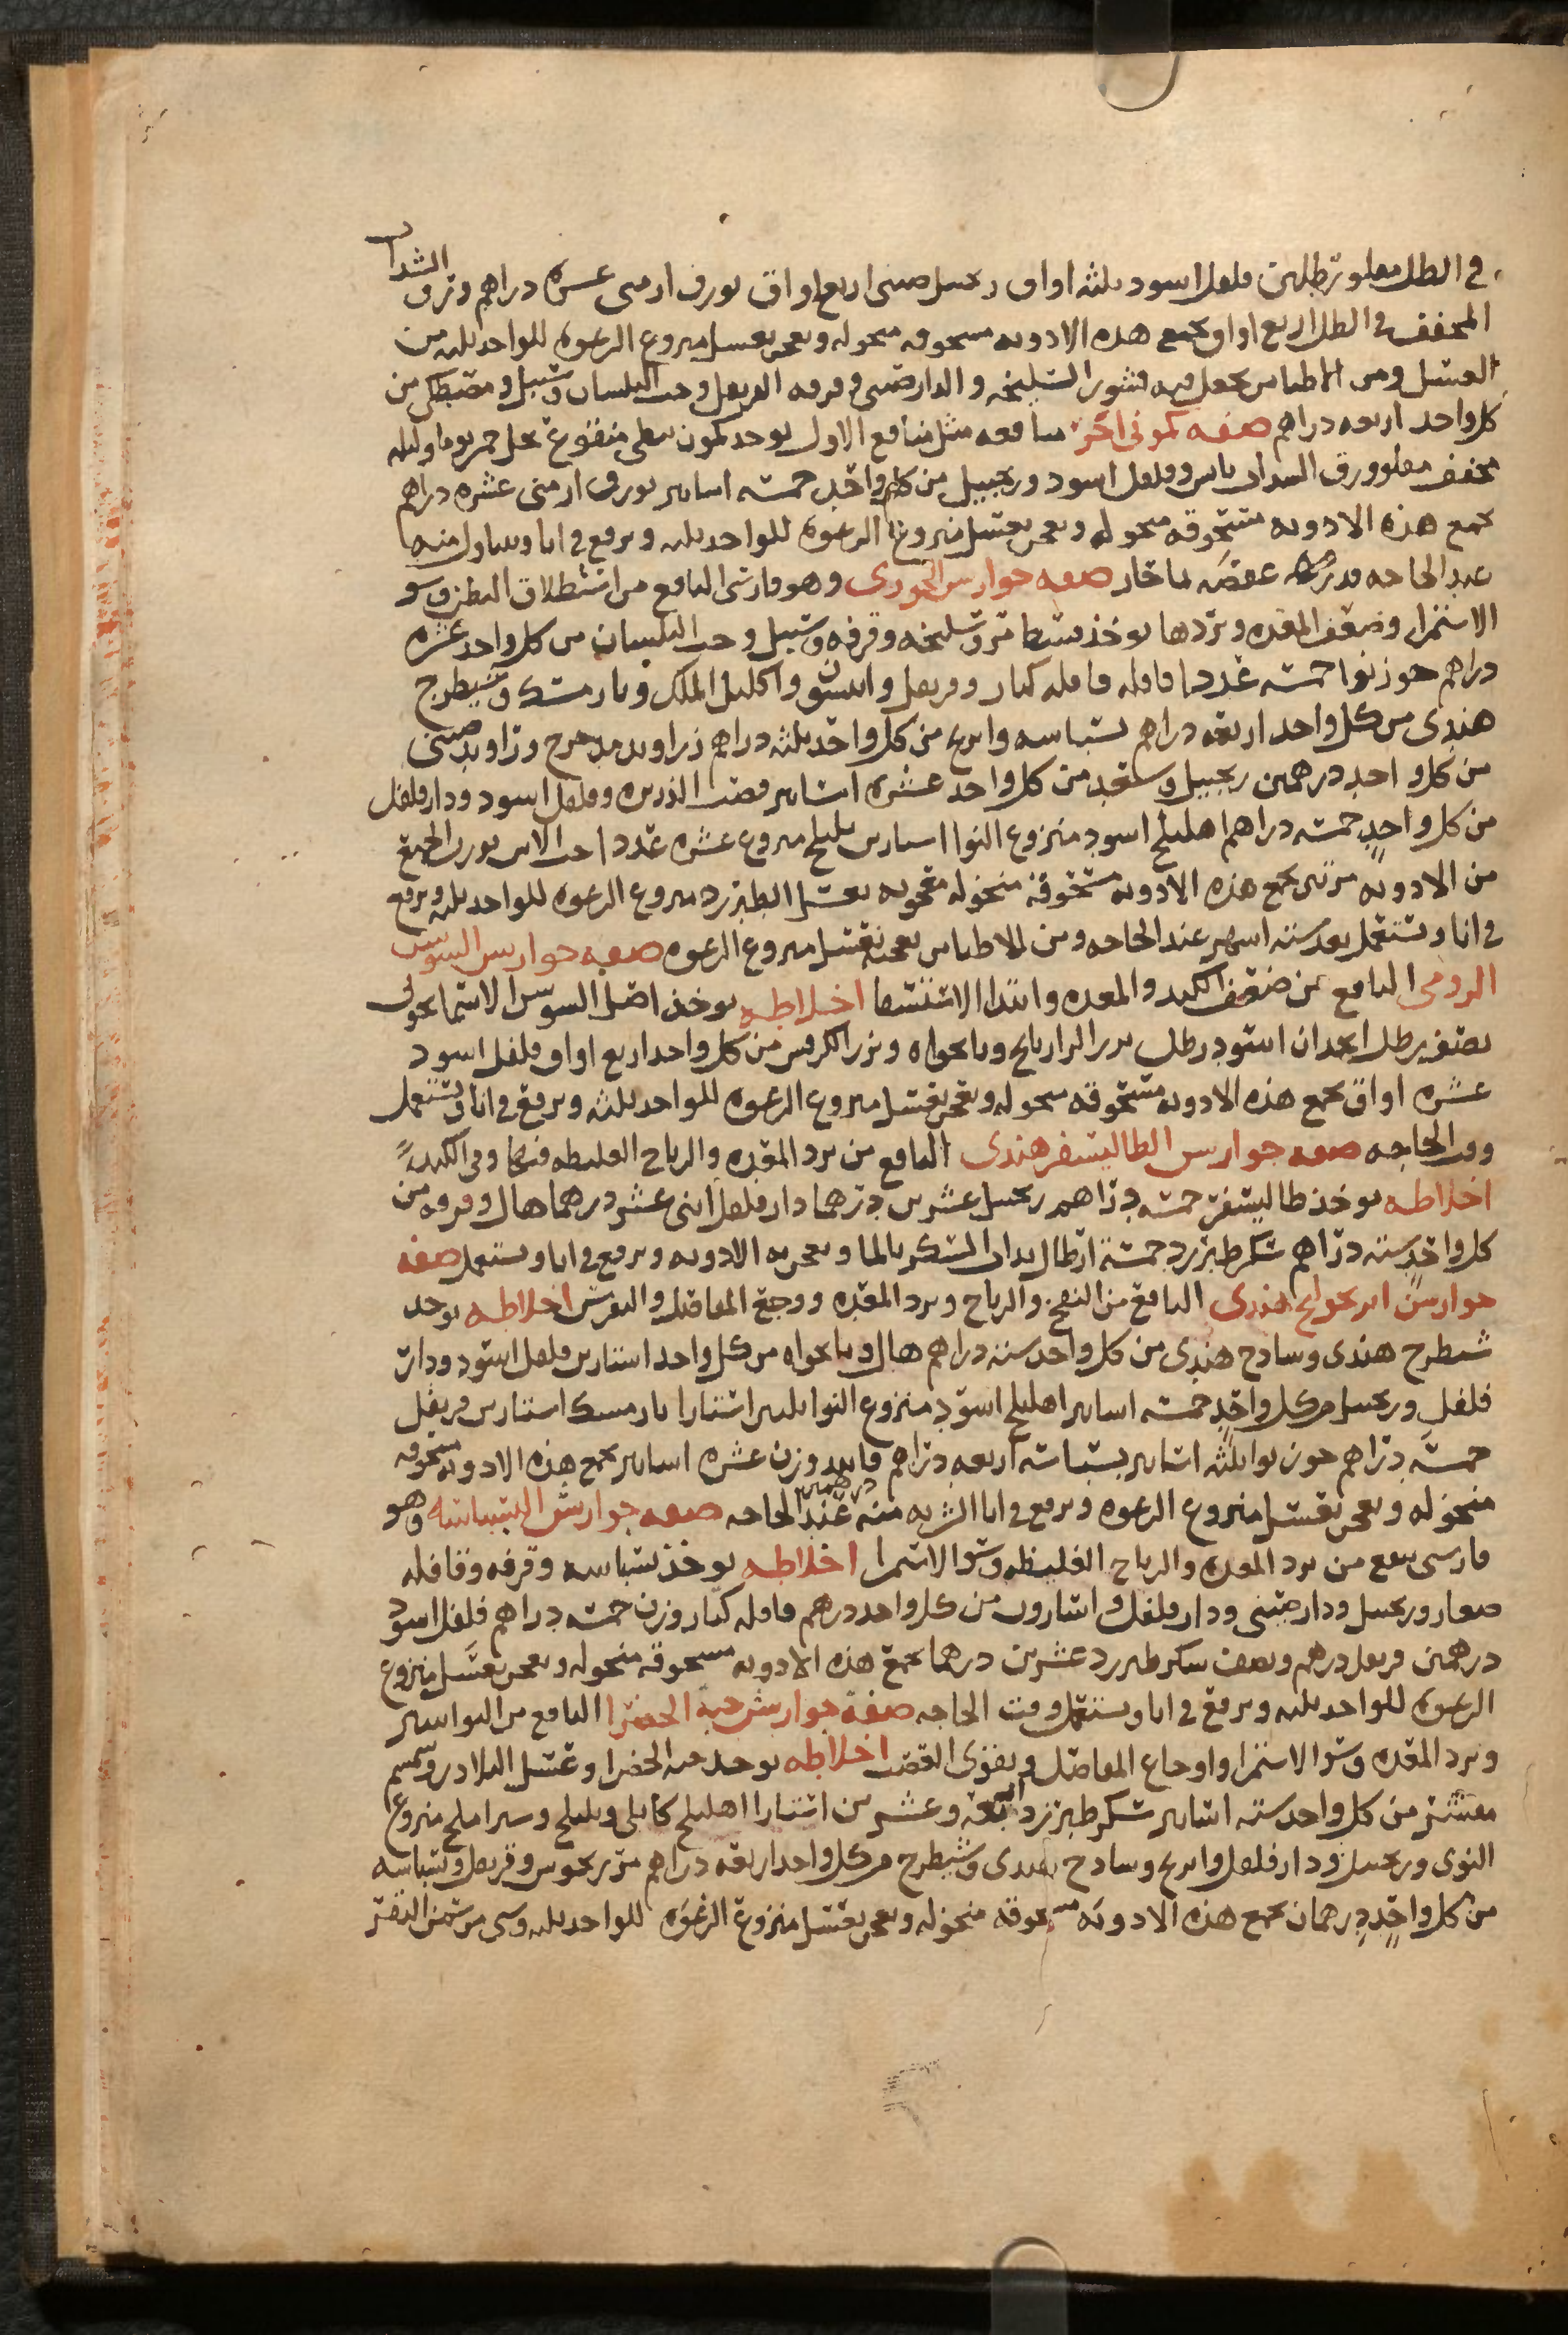 في الظل مقلو رطلين فلفل اسود ثلثه اواق زنجبيل صيني اربع اواق بورق ارمني عشره دراهم ورق السداب
المجفف في الظل اربع اواق تجمع هذه الادويه مسحوقه منخوله وتعجن بعسل منزوع الرغوه للواحد ثلثه من
العسل ومن الاطبا من يجعل فيه قشور السليخه والدارصيني وقرفه القرنفل وحب البلسان وسنبل ومصطكى من
كل واحد اربعه دراهم صفه كموني اخر منافعه مثل منافع الاول يوخذ كمون نبطي منقوع بخل خمر يوما وليله
مجفف مقلو وورق السداب يابس وفلفل اسود وزنجبيل من كل واحد خمسه اساتير بورق ارمني عشره دراهم
تجمع هذه الادويه مسحوقه منخوله وتعجن بعسل منزوع الرغوه للواحد ثلثه ويرفع في انا ويتناول منه
عند الحاجه قدر عفصه بما حار صفه جوارس الخوزي وهو فارسي النافع من استطلاق البطن وسو
الاستمرا وضعف المعده وبردها يوخذ قسط مر وسليخه وقرفه وسنبل وحب البلسان من كل واحد عشره
دراهم جوزبوا خمسه عددا قاقله قاقله كبار وقرنفل وانيسون واكليل الملك ونارمشك وشيطرج
هندي من كل واحد اربعه دراهم بسباسه وابرنج من كل واحد ثلثه دراهم زراوند مدحرج وراوند صيني
من كل واحد درهمين زنجبيل وسعد من كل واحد عشره اساتير قصب الذريره وفلفل اسود ودارفلفل
من كل واحد خمسه دراهم اهليلج اسود منزوع النوا استارين بليلج منزوع عشره عددا حب الاس بوزن الجميع
من الادويه مرتين تجمع هذه الادويه مسحوقه منخوله معجونه بعسل الطبرزد منزوع الرغوه للواحد ثلثه ويرفع
في انا ويستعمل بعد سته اشهر عند الحاجه ومن الاطبا من يعجنه بعسل منزوع الرغوه صفه جوارس السوسن
الرومي النافع من ضعف الكبد والمعده وابتدا الاستسقا اخلاطه يوخذ اصل السوسن الاسمانجوني
نصف رطل انجدان اسود رطل بزر الرازيانج ونانخواه وبزر الكرفس من كل واحد اربع اواق فلفل اسود
عشره اواق تجمع هذه الادويه مسحوقه منخوله وتعجن بعسل منزوع الرغوه للواحد ثلثه ويرفع في انا ويستعمل
وقت الحاجه صفه جوارس الطاليسفر هندي النافع من برد المعده والرياح الغليظه فيها وفي الكبد
اخلاطه يوخذ طاليسفر خمسه دراهم زنجبيل عشرين درهما دارفلفل اثني عشر درهما هال وقرفه من
كل واحد سته دراهم سكر طبرزد خمسة ارطال يداف السكر بالما وتعجن به الادويه ويرفع في انا ويستعمل صفه
جوارس هندي النافع من النفخ والرياح وبرد المعده ووجع المفاصل والنقرس اخلاطه يوخذ
شيطرج هندي وساذج هندي من كل واحد سته دراهم هال ونانخواه من كل واحد استارين فلفل اسود ودار
فلفل وزنجبيل من كل واحد خمسه اساتير اهليلج اسود منزوع النوا ثلثين استارا نارمسك استارين قرنفل
خمسه دراهم جوزبوا ثلثه اساتير بسباسه اربعه دراهم فانيد وزن عشره اساتير تجمع هذه الادويه مسحوقه
منخوله وتعجن بعسل منزوع الرغوه ويرفع في انا الشربه منه درهمين عند الحاجه صفه جوارش البسباسه وهو
فارسي ينفع من برد المعده والرياح الغليظه وسو الاستمرا اخلاطه يوخذ بسباسه وقرفه وقاقله
صغار وزنجبيل ودارصيني ودارفلفل واسارون من كل واحد درهم قاقله كبار وزن خمسه دراهم فلفل اسود
درهمين قرنفل درهم ونصف سكر طبرزد عشرين درهما تجمع هذه الادويه مسحوقه منخوله وتعجن بعسل منزوع
الرغوه للواحد ثلثه ويرفع في انا ويستعمل وقت الحاجه صفه جوارش حبة الخضرا النافع من البواسير
وبرد المعده وسو الاستمرا واوجاع المفاصل ويقوي العصب اخلاطه يوخذ حبه الخضرا وعسل البلادر وسمسم
مقشر من كل واحد سته اساتير سكر طبرزد اربعه وعشرين استارا اهليلج كابلي وبليلج وشيراملج منزوع
النوى وزنجبيل ودارفلفل وابرنج وساذج هندي وشيطرج من كل واحد اربعه دراهم وقرنفل وبسباسه
من كل واحد درهمان تجمع هذه الادويه مسحوقه منخوله وتعجن بعسل منزوع الرغوه للواحد ثلثه وشي من سمن البقر